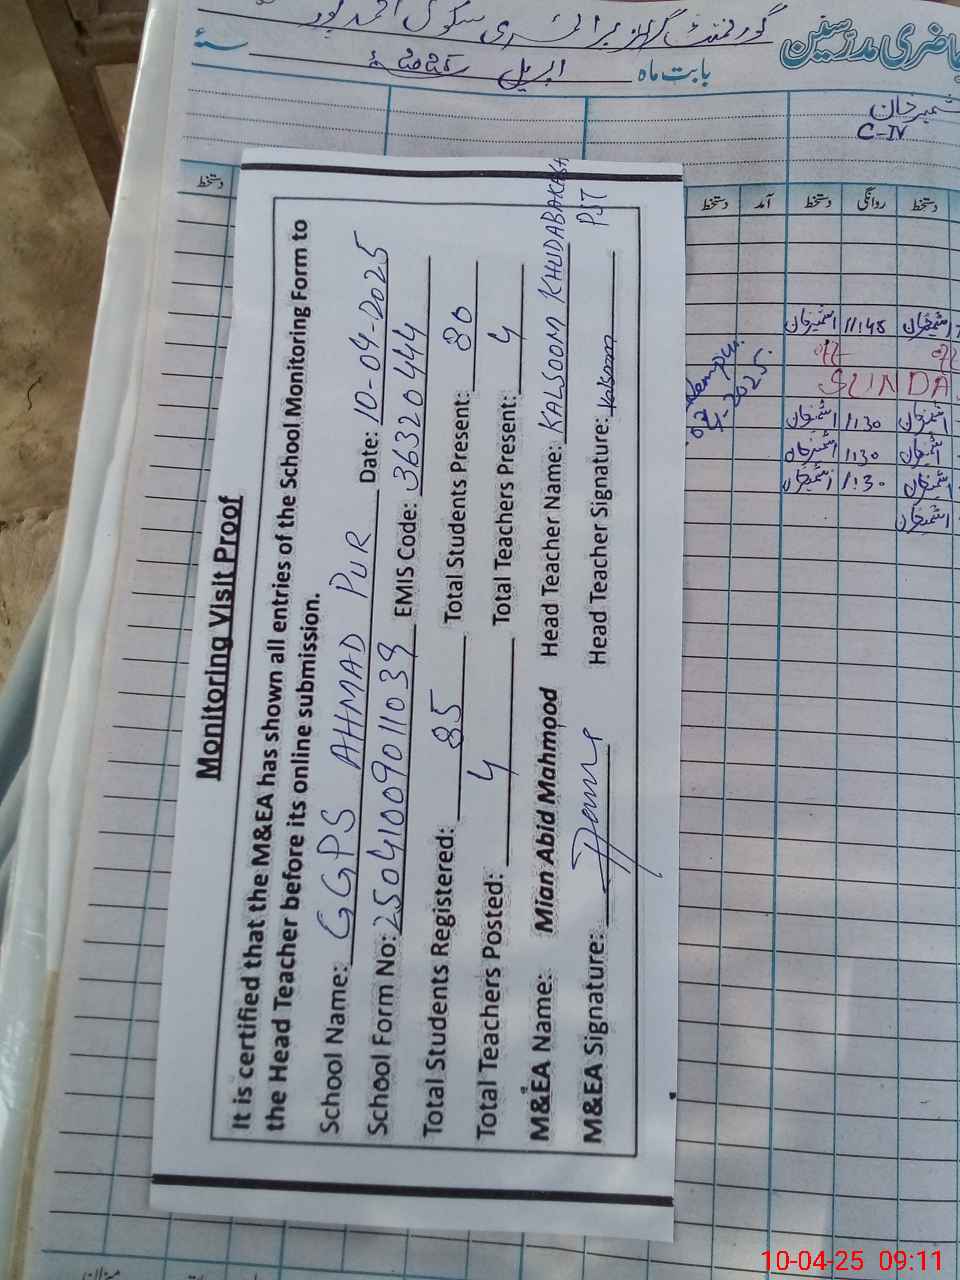 حاضری مدرسین گورنمنٹ گرلز پرائمری سکول احمد پور
بابت ماہ اپریل 2025 سنہ
C-IV
دستخط
دستخط آمد دستخط روانگی دستخط
Monitoring Visit Proof
It is certified that the M&EA has shown all entries of the School Monitoring Form to
the Head Teacher before its online submission.
School Name: GGPS AHMAD PUR Date: 10-04-2025
School Form No: 250410090110 39 EMIS Code: 36320444
Total Students Registered: 85 Total Students Present: 80
Total Teachers Posted: 4 Total Teachers Present: 4
M&EA Name: Mian Abid Mahmood Head Teacher Name: KALSOOM KHUDABAKASH
PST
M&EA Signature: Head Teacher Signature: Kalsoom
11:45
SUNDA
1:30
1:30
1:30
میزان
10-04-25 09:11